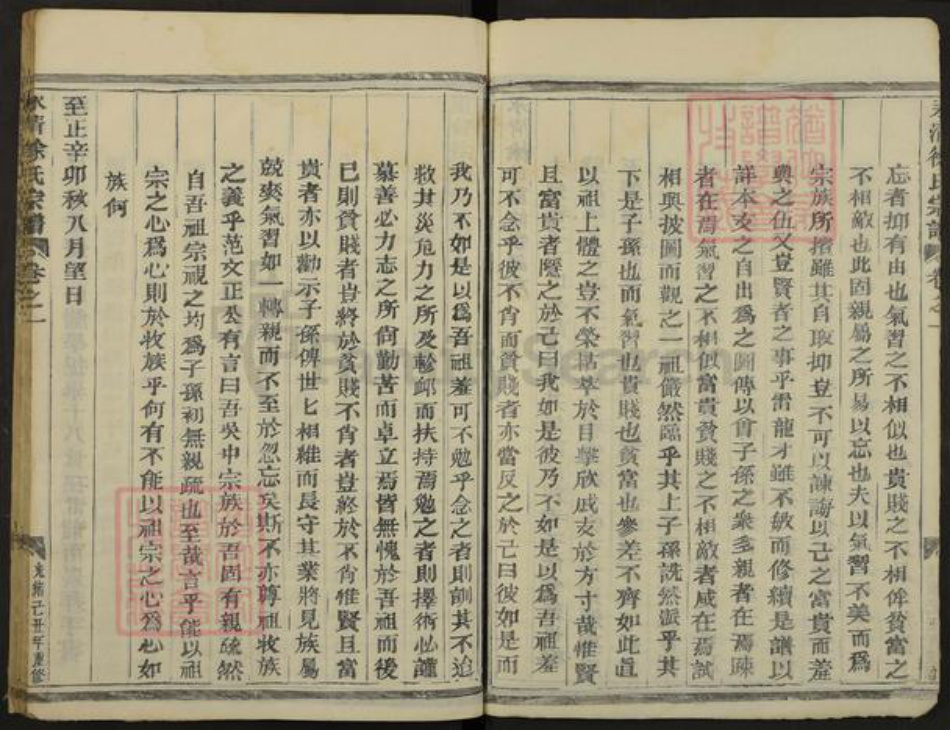 忘者抑有由也氣習之不相似也貴賤之不相侔貧富之
不相敵也此固親屬之所易以忘也夫以氣習不美而爲
宗族所擯雖其自取抑豈不可以諫誨以己之富貴而羞
與之伍又豈賢者之事乎雷龍才雖不敏而修續是譜以
詳本支之自出爲之圖傳以會子孫之衆多親者在焉疎
者在焉氣習之不相似富貴貧賤之不相敵者咸在焉試
相與披圖而觀之一祖儼然臨乎其上子孫詵然派乎其
下是子孫也而氣習也貴賤也貧富也參差不齊如此直
以祖上體之豈不榮枯萃於目擊欣戚交於方寸哉惟賢
且富貴者隱之於己曰我如是彼乃不如是以爲吾祖羞
可不念乎彼不肖而貧賤者亦當反之於己曰彼如是而
我乃不如是以爲吾祖羞可不勉乎念之者則訓其不逮
救其災危力之所及軫卹而扶持焉勉之者則擇術必謹
慕善必力志之所尙勤苦而卓立焉皆無愧於吾祖而後
已則貧賤者豈終於貧賤不肖者豈終於不肖惟賢且富
貴者亦以勸示子孫傳世匕相維而長守其業將見族屬
兢爽氣習如一轉親而不至於忽忘矣斯不亦尊祖收族
之義乎范文正公有言曰吾吳中宗族於吾固有親疏然
自吾祖宗視之均爲子孫初無親疏也至哉言乎能以祖
宗之心爲心則於收族乎何有不能以祖宗之心爲心如
族何
至正辛卯秋八月望日
氏宗譜 卷之一
光緒己丑年重修